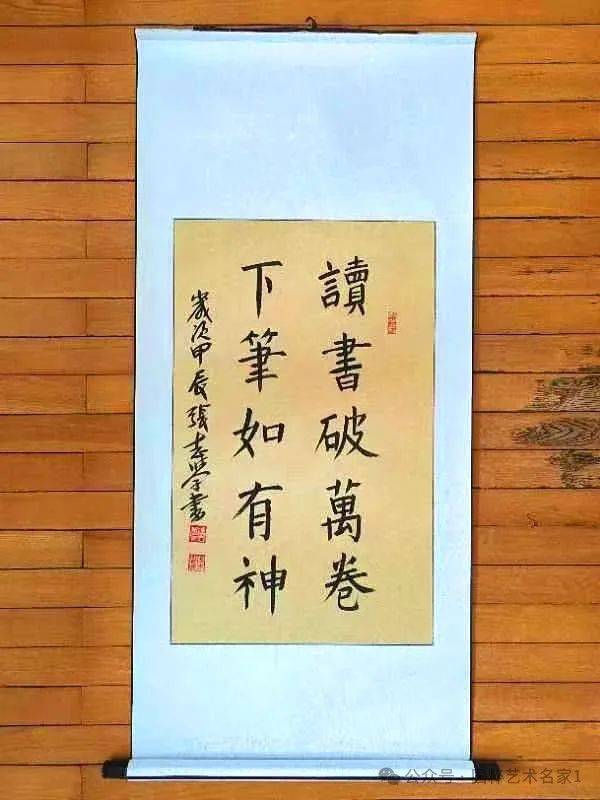 讀書破萬卷
下筆如有神
歲次甲辰張志學書
公众号·国粹艺术名家1